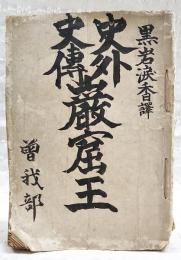 黒岩涙香譯
史外
史傳
巖窟王
曽我部